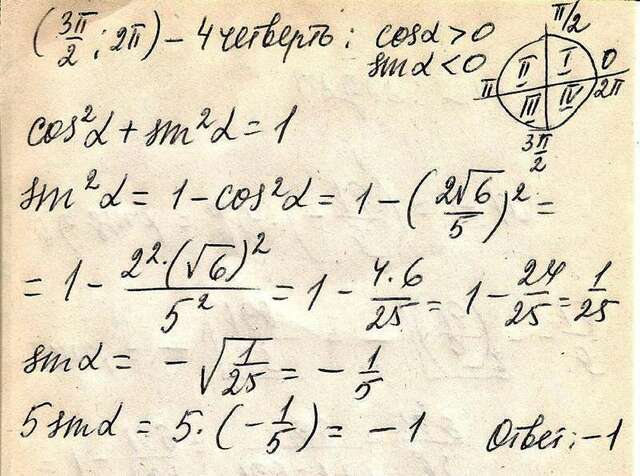 (3π/2; 2π) – 4 четверть; cosα>0
sinα<0
π/2
II I 0
π III IV 2π
3π/2
cos²α + sin²α = 1
sin²α = 1 – cos²α = 1 – (2√6/5)² =
= 1 – 2²·(√6)²/5² = 1 – 4·6/25 = 1 – 24/25 = 1/25
sinα = – √1/25 = – 1/5
5sinα = 5·(–1/5) = –1 Ответ: –1